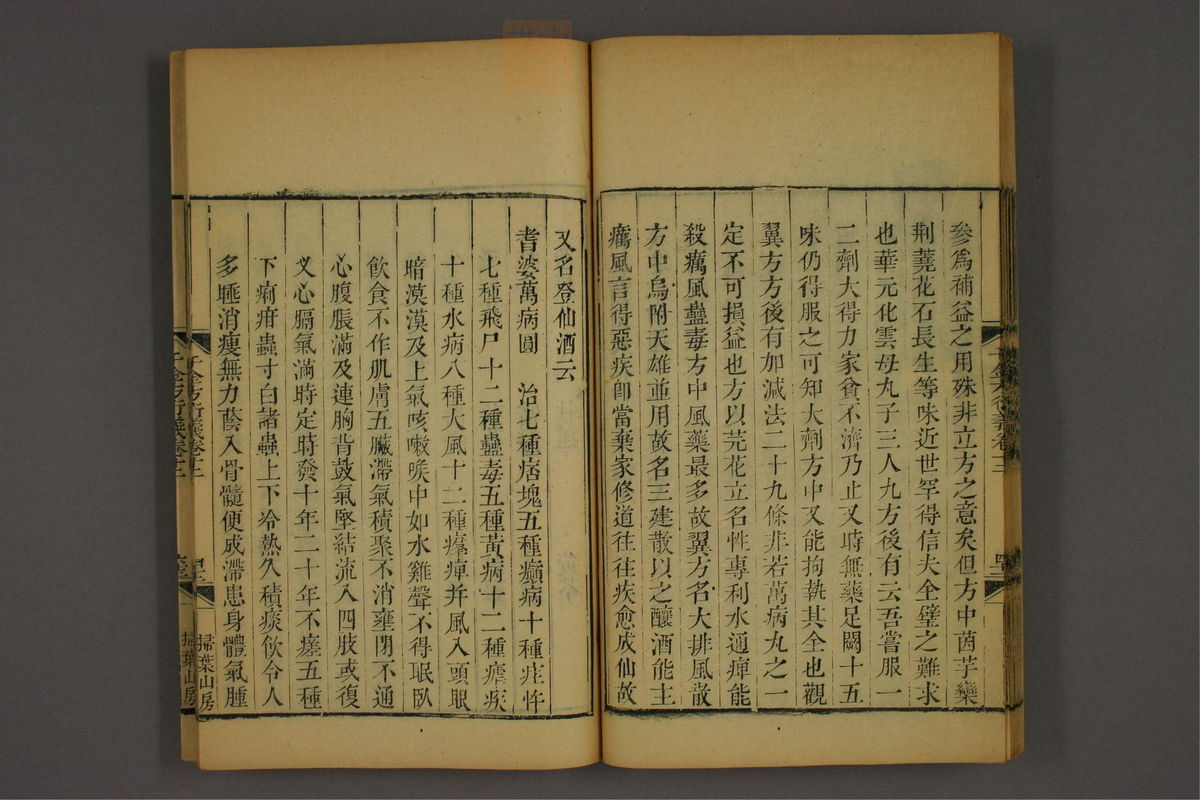 參為補益之用殊非立方之意矣但方中茵芋藥
荆蕘花石長生等味近世罕得信夫全璧之難求
也華元化雲母丸子三人丸方後有云吾嘗服一
二劑大得力家貧不濟乃止又時無藥足闕十五
味仍得服之可知大劑方中又能拘執其全也觀
翼方方後有加減法二十九條非若萬病丸之一
定不可損益也方以芫花立名性專利水通痺能
殺癘風蠱毒方中風藥最多故翼方名大排風散
方中烏附天雄並用故名三建散以之釀酒能主
癘風言得惡疾即當棄家修道往往疾愈成仙故
又名登仙酒云
耆婆萬病圓 治七種痞塊五種癲病十種疰忤
七種飛尸十二種蠱毒五種黃病十二種瘧疾
十種水病八種大風十二種𤸷痺并風入頭眼
暗漠漠及上氣咳嗽喉中如水雞聲不得眠臥
飲食不作肌膚五臟滯氣積聚不消壅閉不通
心腹脹滿及連胸背鼓氣堅結流入四肢或復
叉心膈氣滿時定時發十年二十年不瘥五種
下痢疳蟲寸白諸蟲上下冷熱久積痰飲令人
多睡消瘦無力蔭入骨髓便成滯患身體氣腫
千金方衍義卷十二
掃葉山房
掃葉山房